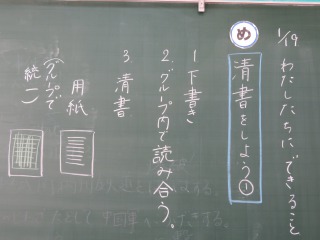 1/19 わたしたちにできること
め
清書をしよう①
1 下書き
2. グループ内で読み合う。
3 清書
用紙
(グループで
統一